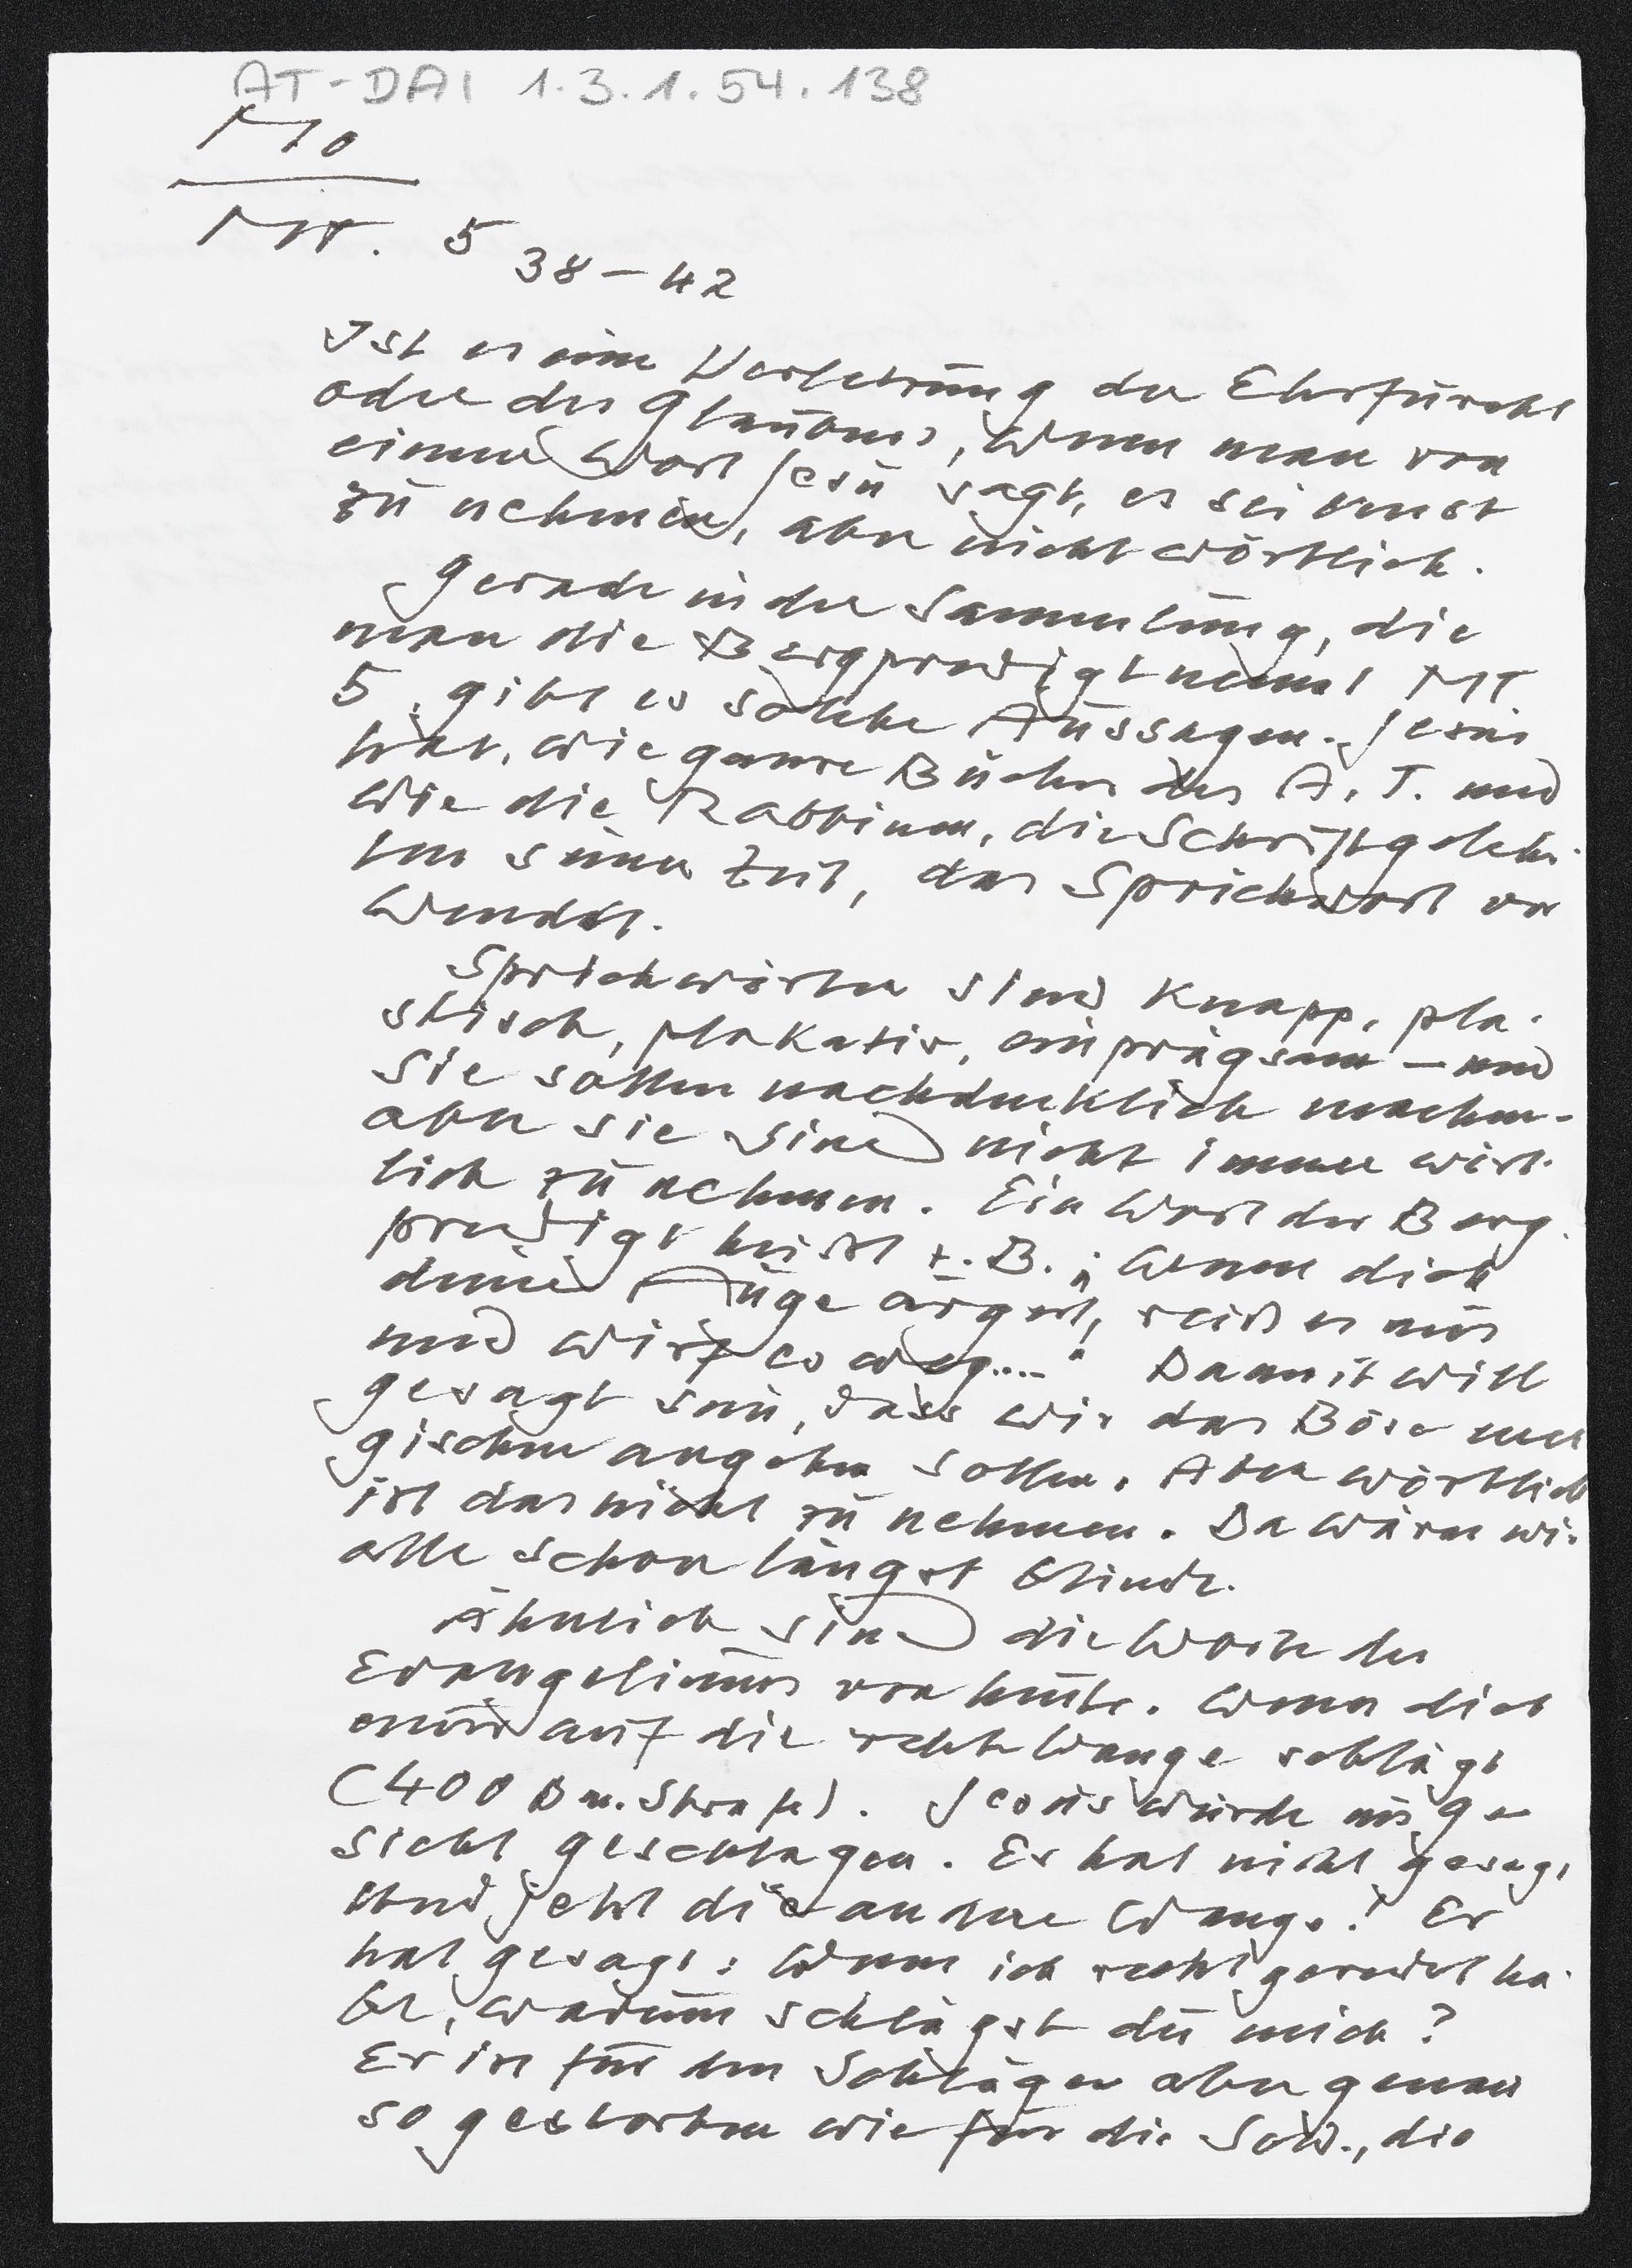 AT-DAI 1.3.1.54.138
Mo
MT. 5 38-42
Ist es eine Verletzung der Ehrfurcht
oder des Glaubens, wenn man von
einem Wort Jesu sagt, es sei ernst
zu nehmen, aber nicht wörtlich.
Gerade in der Sammlung, die
man die Bergpredigt nennt MT
5, gibt es solche Aussagen. Jesus
hat, wie ganze Bücher des A.T. und
wie die Rabbinen, die Schriftgelehr-
ten seiner Zeit, das Sprichwort ver
wendet.
Sprichwörter sind knapp, pla-
stisch, plakativ, einprägsam – und
sie sollen nachdenklich machen -
aber sie sind nicht immer wört-
lich zu nehmen. Ein Wort der Berg-
predigt heißt z.B. „Wenn dich
dein Auge ärgert, reiß es aus
und wirf es weg...." Damit will
gesagt sein, dass wir das Böse ener
gischer angehen sollen. Aber wörtlich
ist das nicht zu nehmen. Da wären wir
alle schon längst blinde.
Ähnlich sind die Worte des
Evangeliums von heute. Wenn dich
einer auf die rechte Wange schlägt
(400 Den. Strafe). Jesus wurde ins Ge
sicht geschlagen. Er hat nicht gesagt
Und jetzt die andere Wange! Er
hat gesagt: Wenn ich recht geredet ha-
be, warum schlägst du mich?
Er ist für den Schläger aber genau
so gestorben wie für die Schw., die